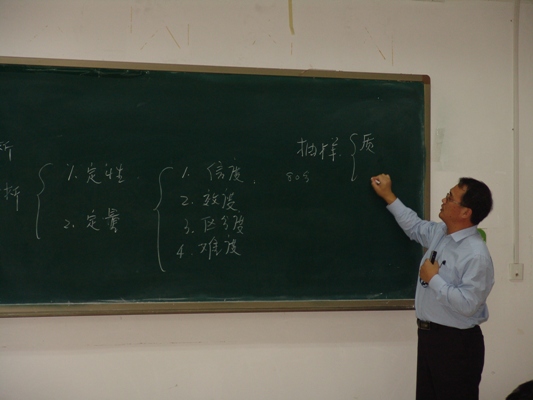 析
析
1. 定性
2. 定量
1. 信度
2. 效度
3. 区分度
4. 难度
抽样
质
808